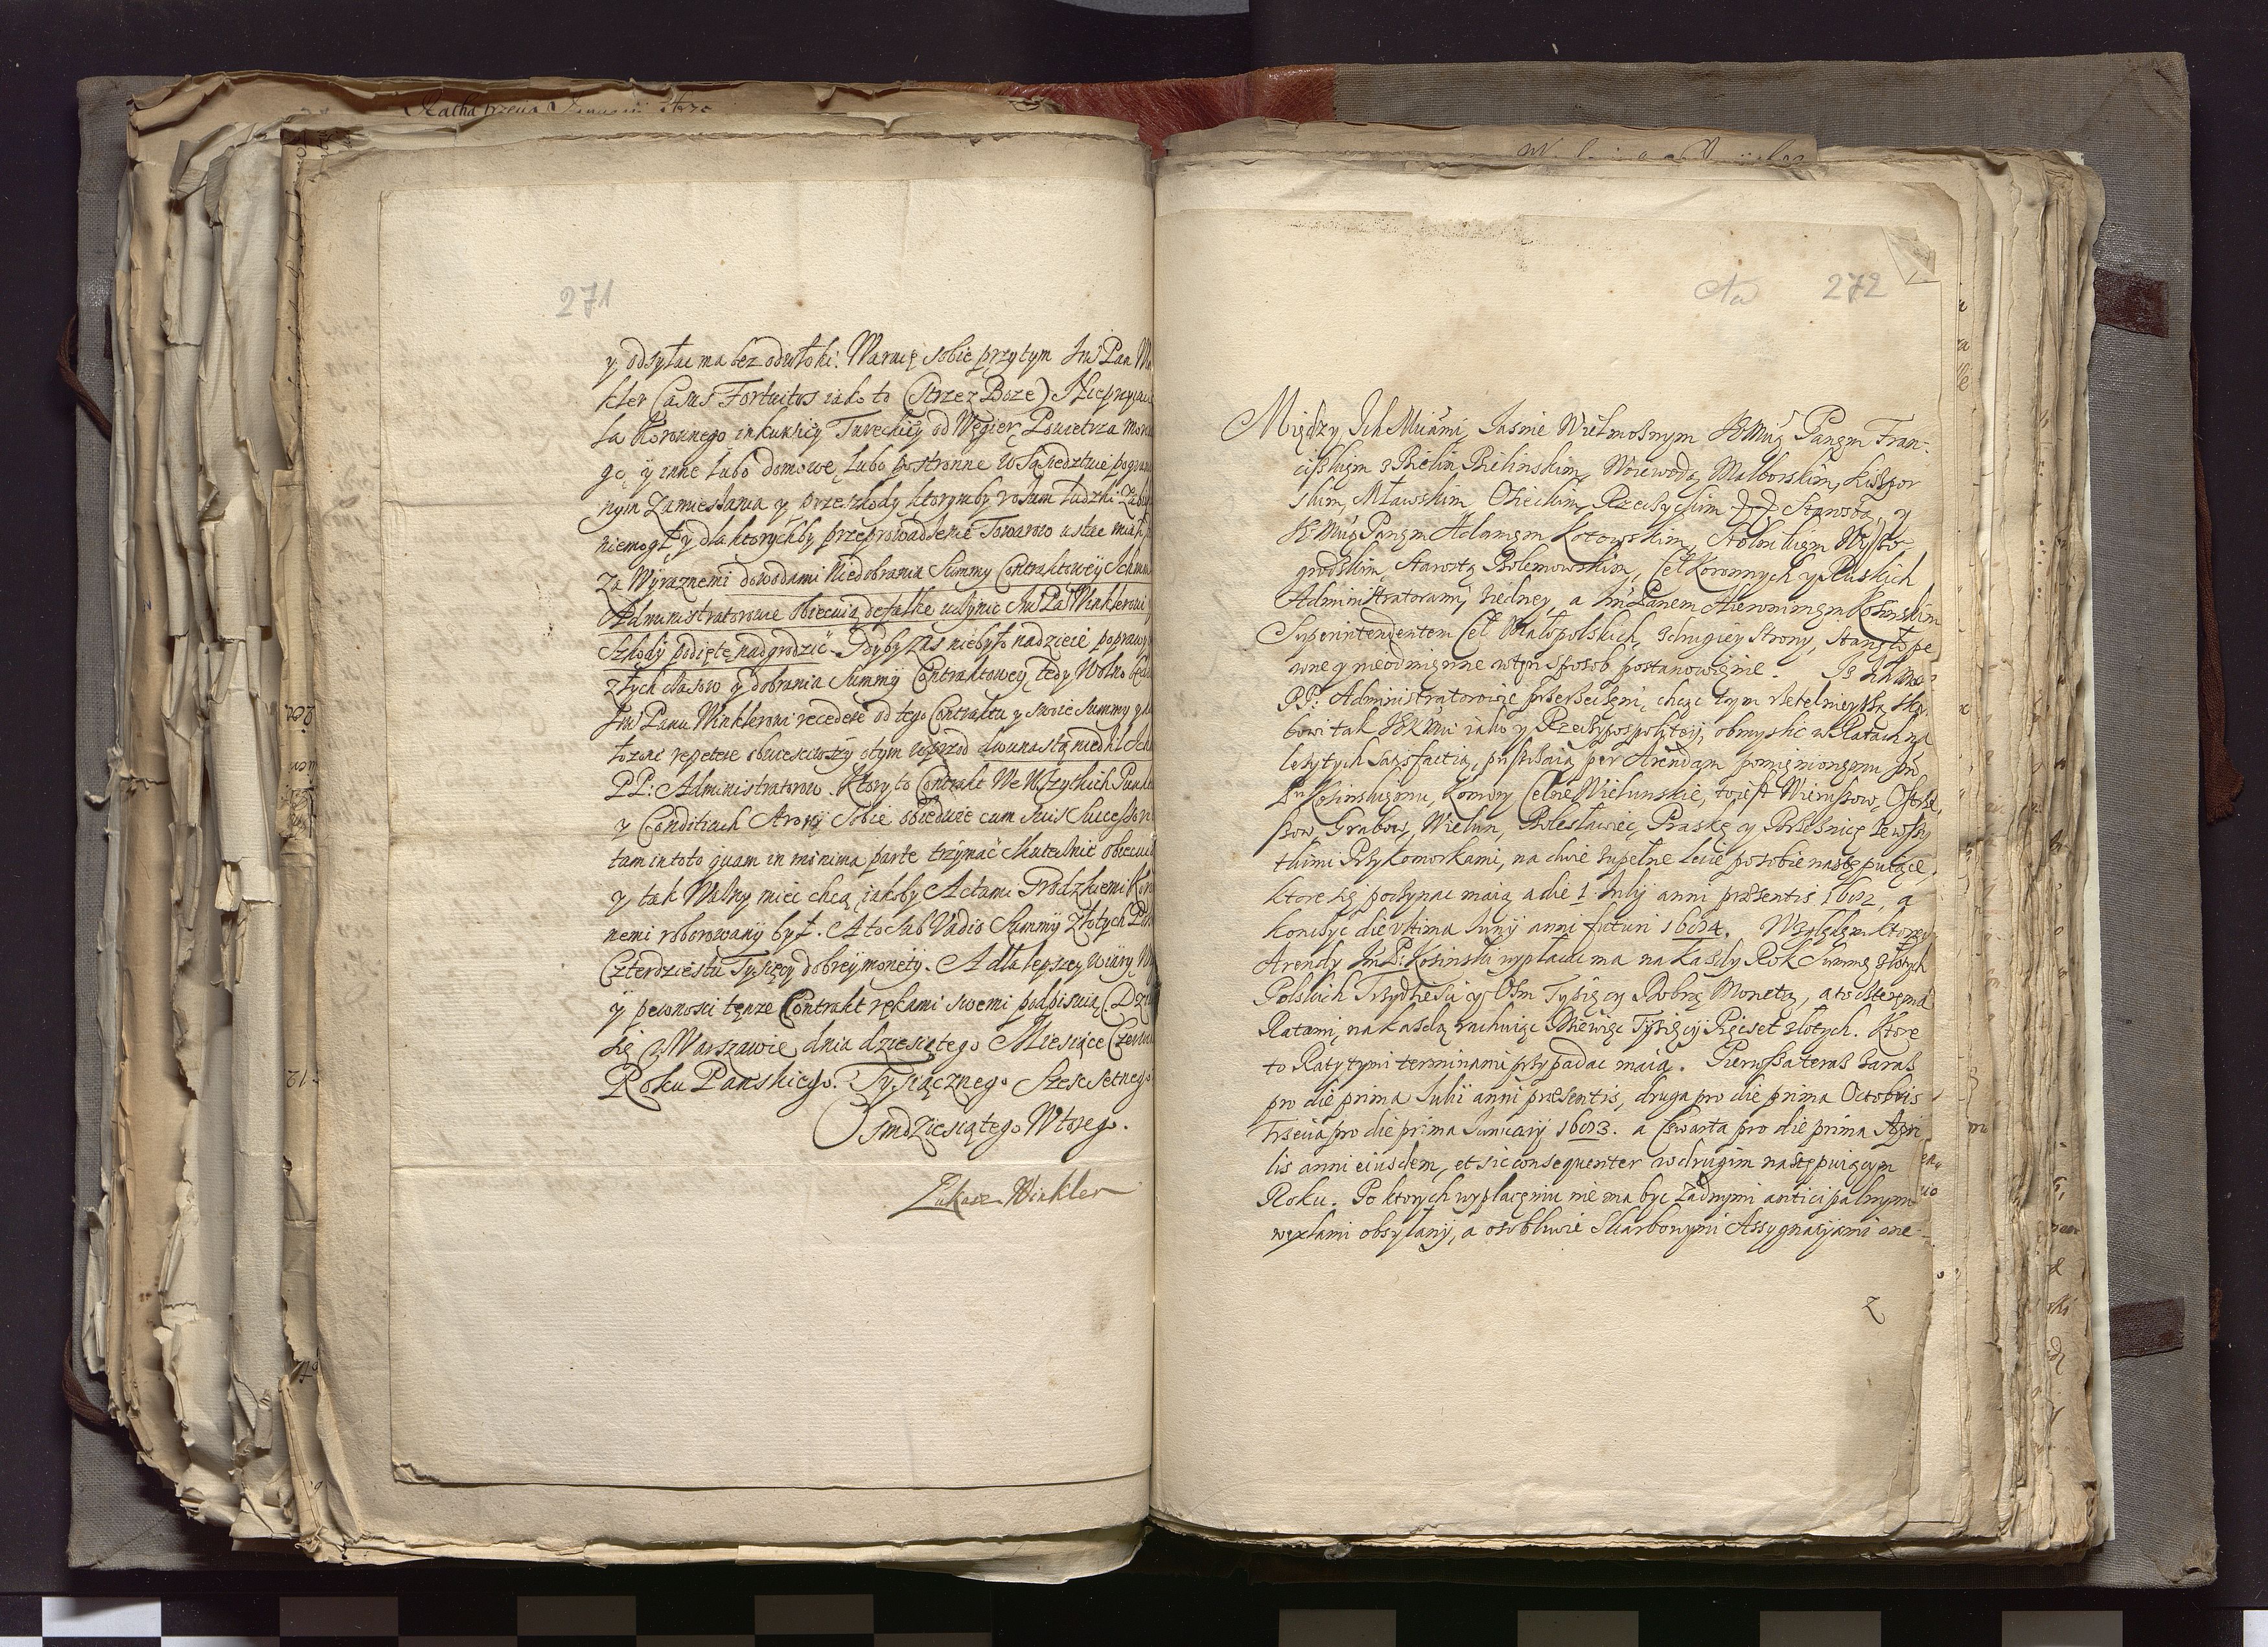 Ratha trzecia Januarii
271
y odsyłac ma bez odwłoki. Waruię sobie przytym Im Pan
kler Casus Fortuitos iako to (Strzez Boze)
ła Koronnego inkursiy Tureckiey od Węgier Powietrza
gę y inne lubo domowe lubo postronne w Sąsiedztwie
nym zamieszania y przeszkody ktorymby rozum ludzki
niemogł y dla ktorychby przeprowadzenie Towarow ustac miało
za Wyraznemi dowodami Niedobrania Summy Contraktowey
Administratorowie obiecuią defalkę uczynic Im Pa Winklerowi
Szkody podięte nadgrodzić. Gdyby zas niebyło nadzieie poprawy
złych czasow y dobrania Summy Contraktowey, tedy Wolno
Im Panu Winklerowi recedere od tego Contraktu y swoie Summy
łozone repetere obwiesciwszy otym wprzod dwunastą niedhil
PP: Administratorow. Ktory to Contrakt We Wszytkich
y Conditiach Strony Sobie obiedwie cum suis
tam in toto quam in minima parte trzymać skutecznie
y tak Walny miec chcą, iakoby Actami Grodzkiemi
nemi roborowany był. A to Sub Vadio Summy Złotych
Czterdziestu Tysięcy dobrey monety. A dla lepszey wiary
y pewnosci tenze Contrakt rękami swemi podpisuią.
się w Warszawie dnia dziesiątego Miesiąca
Roku Panskiego. Tysiącznego Szescsetnego
Osmdziesiątego Wtorego.
Łukasz Winkler
272
Między Ich Mciami, Iasnie Wielmoznym Panem Fran-
ciszkiem z Bielin Bielinskim, Woiewodą Malborskim, Kiszpor
skim, Mławskim, Osieckim, Starostą, y
Panem Adamem Kotowskim, Stolnikiem Wyszo-
grodzkim, Starostą Bolemowskim, Ceł Koronnych y Ruskich
Administratorami, z iedney, a Im Panem Hieronimem Kosinskim
Superintendentem Ceł Małopolskich, z drugiey Strony, stanęło pe
wne y nieodmienne w ten sposob postanowienie. Iz
PP: Administratorowie przerzeczeni, chcąc tym rzetelnieyszą Skar
bowi tak JKMci iako y Rzeczypospolitey, obmyslic w Ratach na
lezytych Satisfactią, puszczaią per Arendam pomienionemu
Kosinskiemu, Komory Celne Wielunskie, to iest Wieruszow, Ostrze
szow, Grabow, Wielun, Bolesławiec, Praszkę y Brzeznicę ze wszy
tkimi Przykomorkami, na dwie zupełne lecie po sobie następuiące,
ktore się poczynac maią a die 1 Iulij anni præsentis 1682, a
konczyć die ultima Iunij anni futuri 1684. Względem ktorey
Arendy Im P: Kosinski wypłacic ma na kazdy Rok Summę złotych
Polskich Trzydziesci y Osm Tysięcy Dobrą Monetą, a to czterema
Ratami, na kazdą rachuiąc Dziewięc Tysięcy Pięcset złotych. Ktore
to Raty tymi terminami przypadac maią. Pierwsza teraz zaraz
pro die prima Iulii anni præsentis, druga pro die prima Octobris
trzecia pro die prima Ianuarij 1683. a czwarta pro die prima Apri
lis anni eiusdem, et sic consequenter w drugim następuiącym
Roku. Po ktorych wypłaceniu nie ma byc zadnymi anticipalnymi
wexlami obsyłany, a osobliwie Skarbowymi Assygnacyami one-